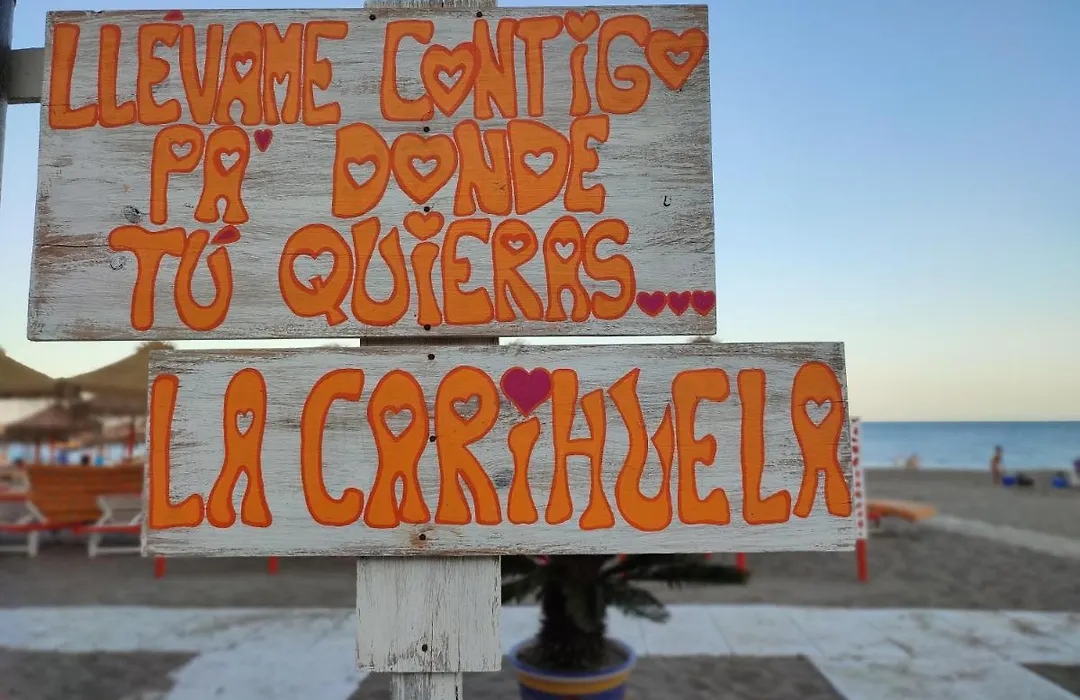 LLÉVAME CONTIGO
PA' DONDE
TÚ QUIERAS...
LA CARIHUELA